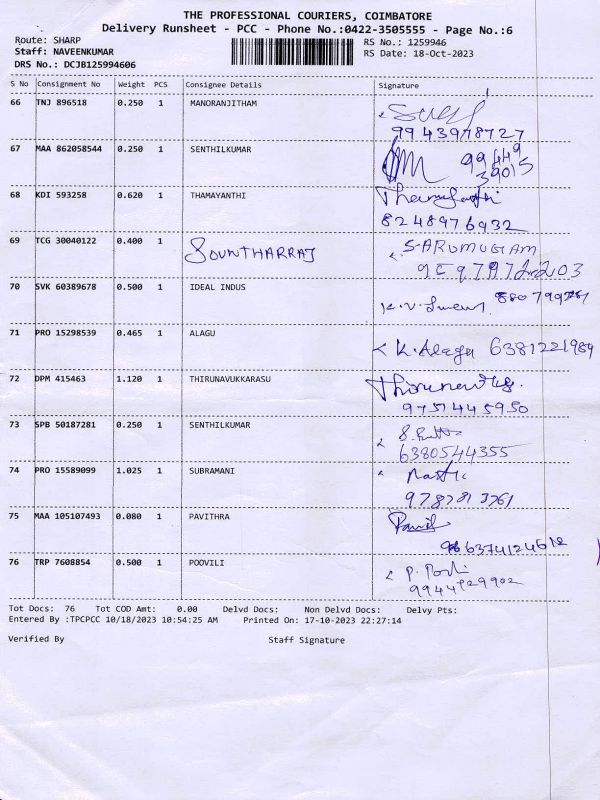 THE PROFESSIONAL COURIERS, COIMBATORE
Delivery Runsheet - PCC - Phone No.:0422-3505555 - Page No.:6
Route: SHARP RS No.: 1259946
Staff: NAVEENKUMAR RS Date: 18-Oct-2023
DRS No.: DCJB125994606
S No Consignment No Weight PCS Consignee Details Signature
66 TNJ 896518 0.250 1 MANORANJITHAM
9943978727
67 MAA 862058544 0.250 1 SENTHILKUMAR 99449
39015
68 KDI 593258 0.620 1 THAMAYANTHI
8248976932
69 TCG 30040122 0.400 1 SOUNTHARRAJ S-ARUMUGAM
70 SVK 60389678 0.500 1 IDEAL INDUS
71 PRO 15298539 0.465 1 ALAGU K. Alagu 6381221989
72 DPM 415463 1.120 1 THIRUNAVUKKARASU
9751445950
73 SPB 50187281 0.250 1 SENTHILKUMAR
6380544355
74 PRO 15589099 1.025 1 SUBRAMANI
75 MAA 105107493 0.080 1 PAVITHRA
6374124612
76 TRP 7608854 0.500 1 POOVILI
Tot Docs: 76 Tot COD Amt: 0.00 Delvd Docs: Non Delvd Docs: Delvy Pts:
Entered By :TPCPCC 10/18/2023 10:54:25 AM Printed On: 17-10-2023 22:27:14
Verified By Staff Signature